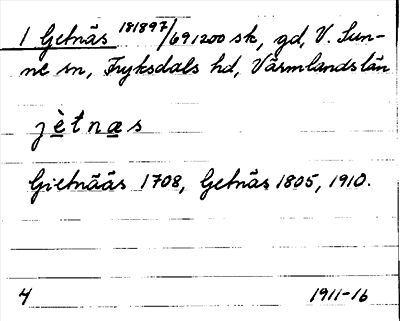 1 Getnäs 181897/691200 sk, gd, V. Sun-
ne sn, Fryksdals hd, Värmlands län
jètnas
Gietnääs 1708, Getnäs 1805, 1910.
4 1911-16